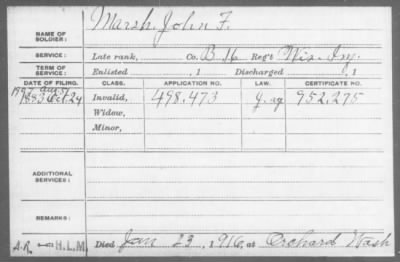 NAME OF SOLDIER: Marsh, John F.
SERVICE: Late rank, Co. B 16 Reg't Wis. Inf.
TERM OF SERVICE: Enlisted , 1 Discharged , 1
DATE OF FILING. CLASS. APPLICATION NO. LAW. CERTIFICATE NO.
1883 Oct 24 Invalid, 498,473 952,275
Widow,
Minor,
ADDITIONAL SERVICES:
REMARKS:
A.R. H.L.M. Died Jan 23, 1916, at Orchard Wash